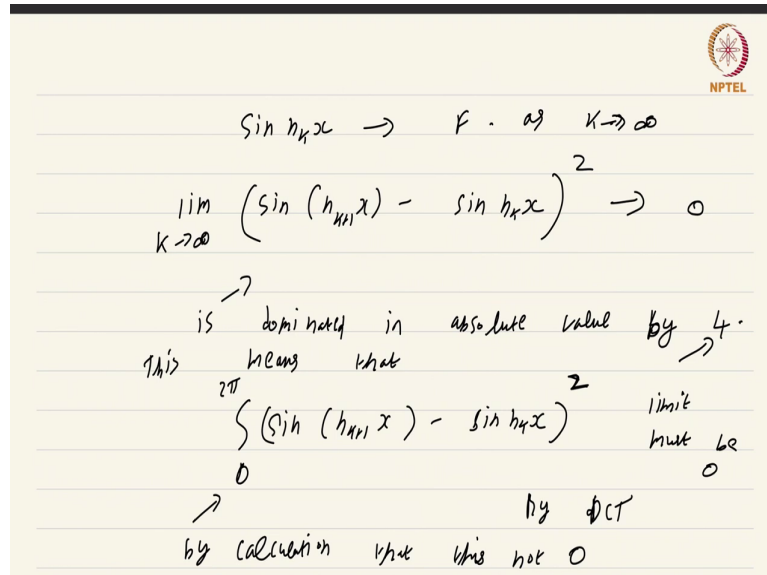 NPTEL
sin n_k x → F. as K→∞
lim_{K→∞} (sin (n_{k+1} x) - sin n_k x)^2 → 0
is dominated in absolute value by 4.
This means that
∫_0^{2π} (sin (n_{k+1} x) - sin n_k x)^2
limit must be 0
by DCT
by calculation that this not 0